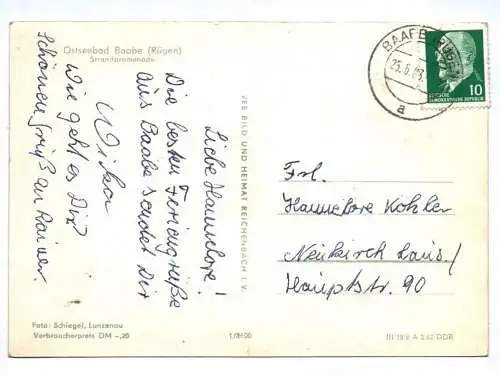 Ostseebad Baabe (Rügen)
Strandpromenade
Liebe Hannelore!
Die besten Feriengrüße
aus Baabe sendet Dir
Wie geht es Dir?
Schönen Gruß an Rainer.
Foto: Schiegel, Lunzenau
Verbraucherpreis DM -,20
VEB BILD UND HEIMAT REICHENBACH I. V.
BAABE
25.6.63
a
10
DEUTSCHE
DEMOKRATISCHE REPUBLIK
Frl.
Hannelore Kohler
Neukirch Laus./
Hauptstr. 90
DDR